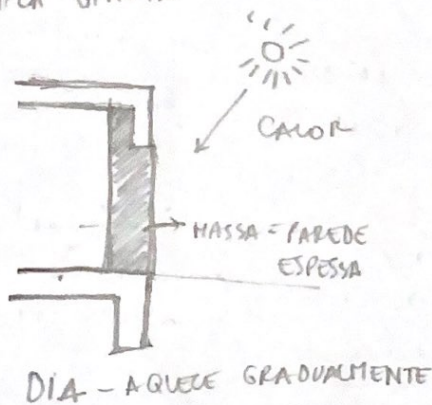 CALOR
MASSA = PAREDE
ESPESSA
DIA - AQUECE GRADUALMENTE